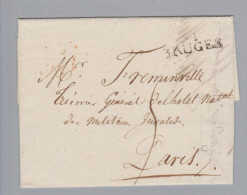 BRUGES
Mr. Freminville
Trésorier Général de l'hotel
des militaires invalides
Paris.